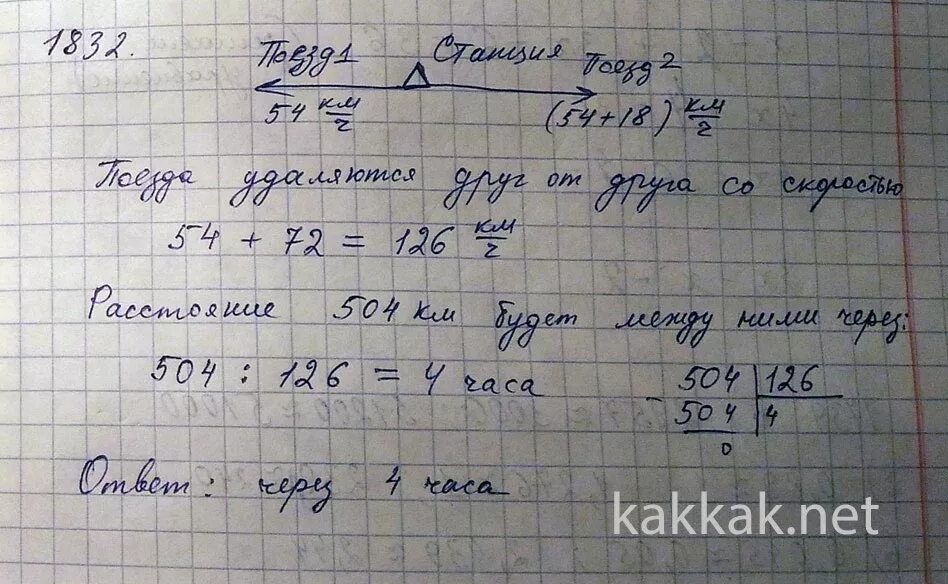 1832.
Поезд1 Станция Поезд2
54 км/ч (54+18) км/ч
Поезда удаляются друг от друга со скоростью
54 + 72 = 126 км/ч
Расстояние 504 км будет между ними через:
504 : 126 = 4 часа
504 126
- 504 4
0
Ответ: через 4 часа
kakkak.net